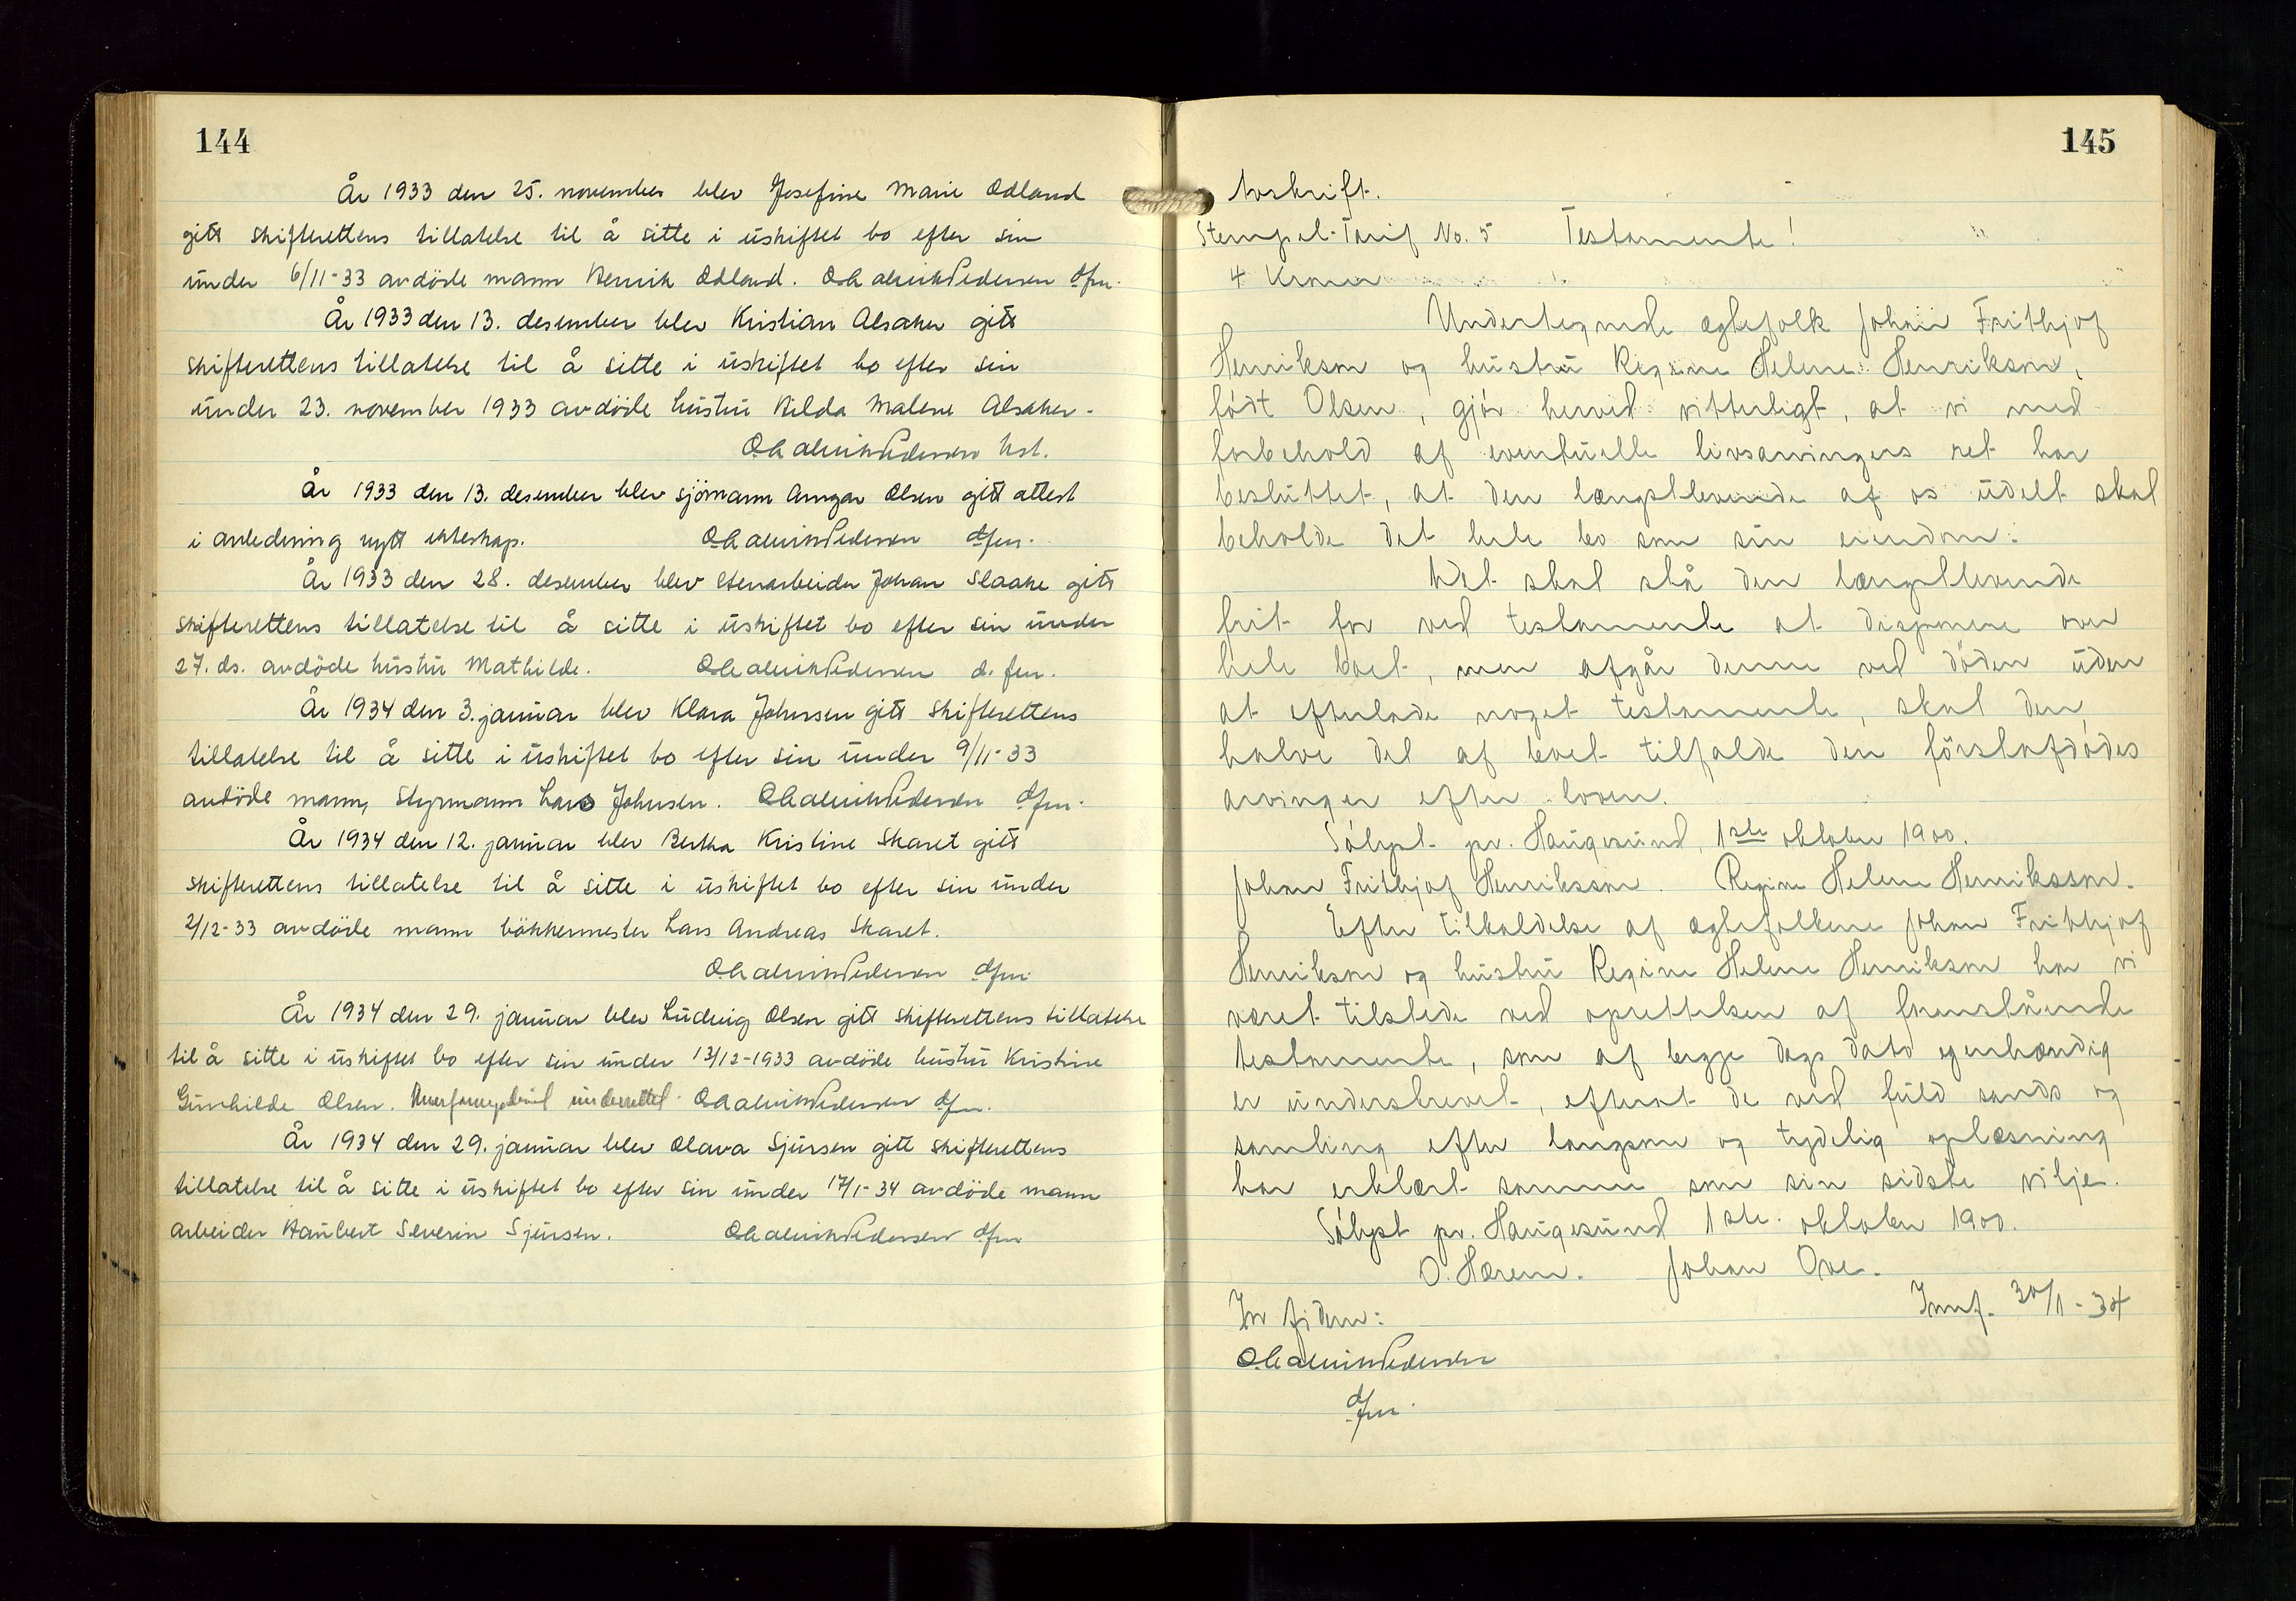 144
År 1933 den 25. november blev Josefine Marie Odland
gitt skifterettens tillatelse til å sitte i uskiftet bo efter sin
under 6/11-33 avdöde mann Henrik Odland. dfm.
År 1933 den 13. desember blev Kristian Alsaker gitt
skifterettens tillatelse til å sitte i uskiftet bo efter sin
under 23. november 1933 avdöde hustru Hilda Malene Alsaker.
År 1933 den 13. desember blev sjömann Ansgar Olsen gitt attest
i anledning nytt ekteskap. dfm.
År 1933 den 28. desember blev stenarbeider Johan Slaake gitt
skifterettens tillatelse til å sitte i uskiftet bo efter sin under
27. ds. avdöde hustru Mathilde. d. fm.
År 1934 den 3. januar blev Klara Johnsen gitt skifterettens
tillatelse til å sitte i uskiftet bo efter sin under 9/11-33
avdöde mann, styrmann Lars Johnsen. dfm.
År 1934 den 12. januar blev Bertha Kristine Skaret gitt
skifterettens tillatelse til å sitte i uskiftet bo efter sin under
2/12-33 avdöde mann bökkermester Lars Andreas Skaret.
dfm.
År 1934 den 29. januar blev Ludvig Olsen gitt skifterettens tillatelse
til å sitte i uskiftet bo efter sin under 13/12-1933 avdöde hustru Kristine
Gunhilde Olsen. underrettet. dfm.
År 1934 den 29. januar blev Olava Sjursen gitt skifterettens
tillatelse til å sitte i uskiftet bo efter sin under 17/1-34 avdöde mann
arbeider Haubert Severin Sjursen. dfm
145
Avskrift.
Stempel-Tarif No. 5 Testamente!
4 Kroner
Undertegnede ægtefolk Johan Frithjof
Henrikson og hustru Regine Helene Henrikson,
född Olsen, gjör herved vitterligt, at vi med
forbehold af eventuelle livsarvingers ret har
besluttet, at den længstlevende af os udelt skal
beholde det hele bo som sin eiendom.
Det skal stå den længstlevende
frit for ved testamente at disponere over
hele boet, men afgår denne ved döden uden
at efterlade noget testamente, skal den
halve del af boet tilfalde den förstafdödes
arvinger efter loven.
Sölyst pr. Haugesund, 1ste oktober 1900.
Johan Frithjof Henriksson. Regine Helene Henriksson.
Efter tilkaldelse af ægtefolkene Johan Frithjof
Henrikson og hustru Regine Helene Henrikson har vi
været tilstede ved oprettelsen af foranstående
testamente, som af begge dags dato egenhændig
er underskrevet, efterat de ved fuld sands og
samling efter langsom og tydelig oplæsning
har erklært samme som sin sidste vilje.
Sölyst pr. Haugesund 1ste. oktober 1900.
O. Hærem. Johan Ove.
Innf. 30/1-34
dfm.